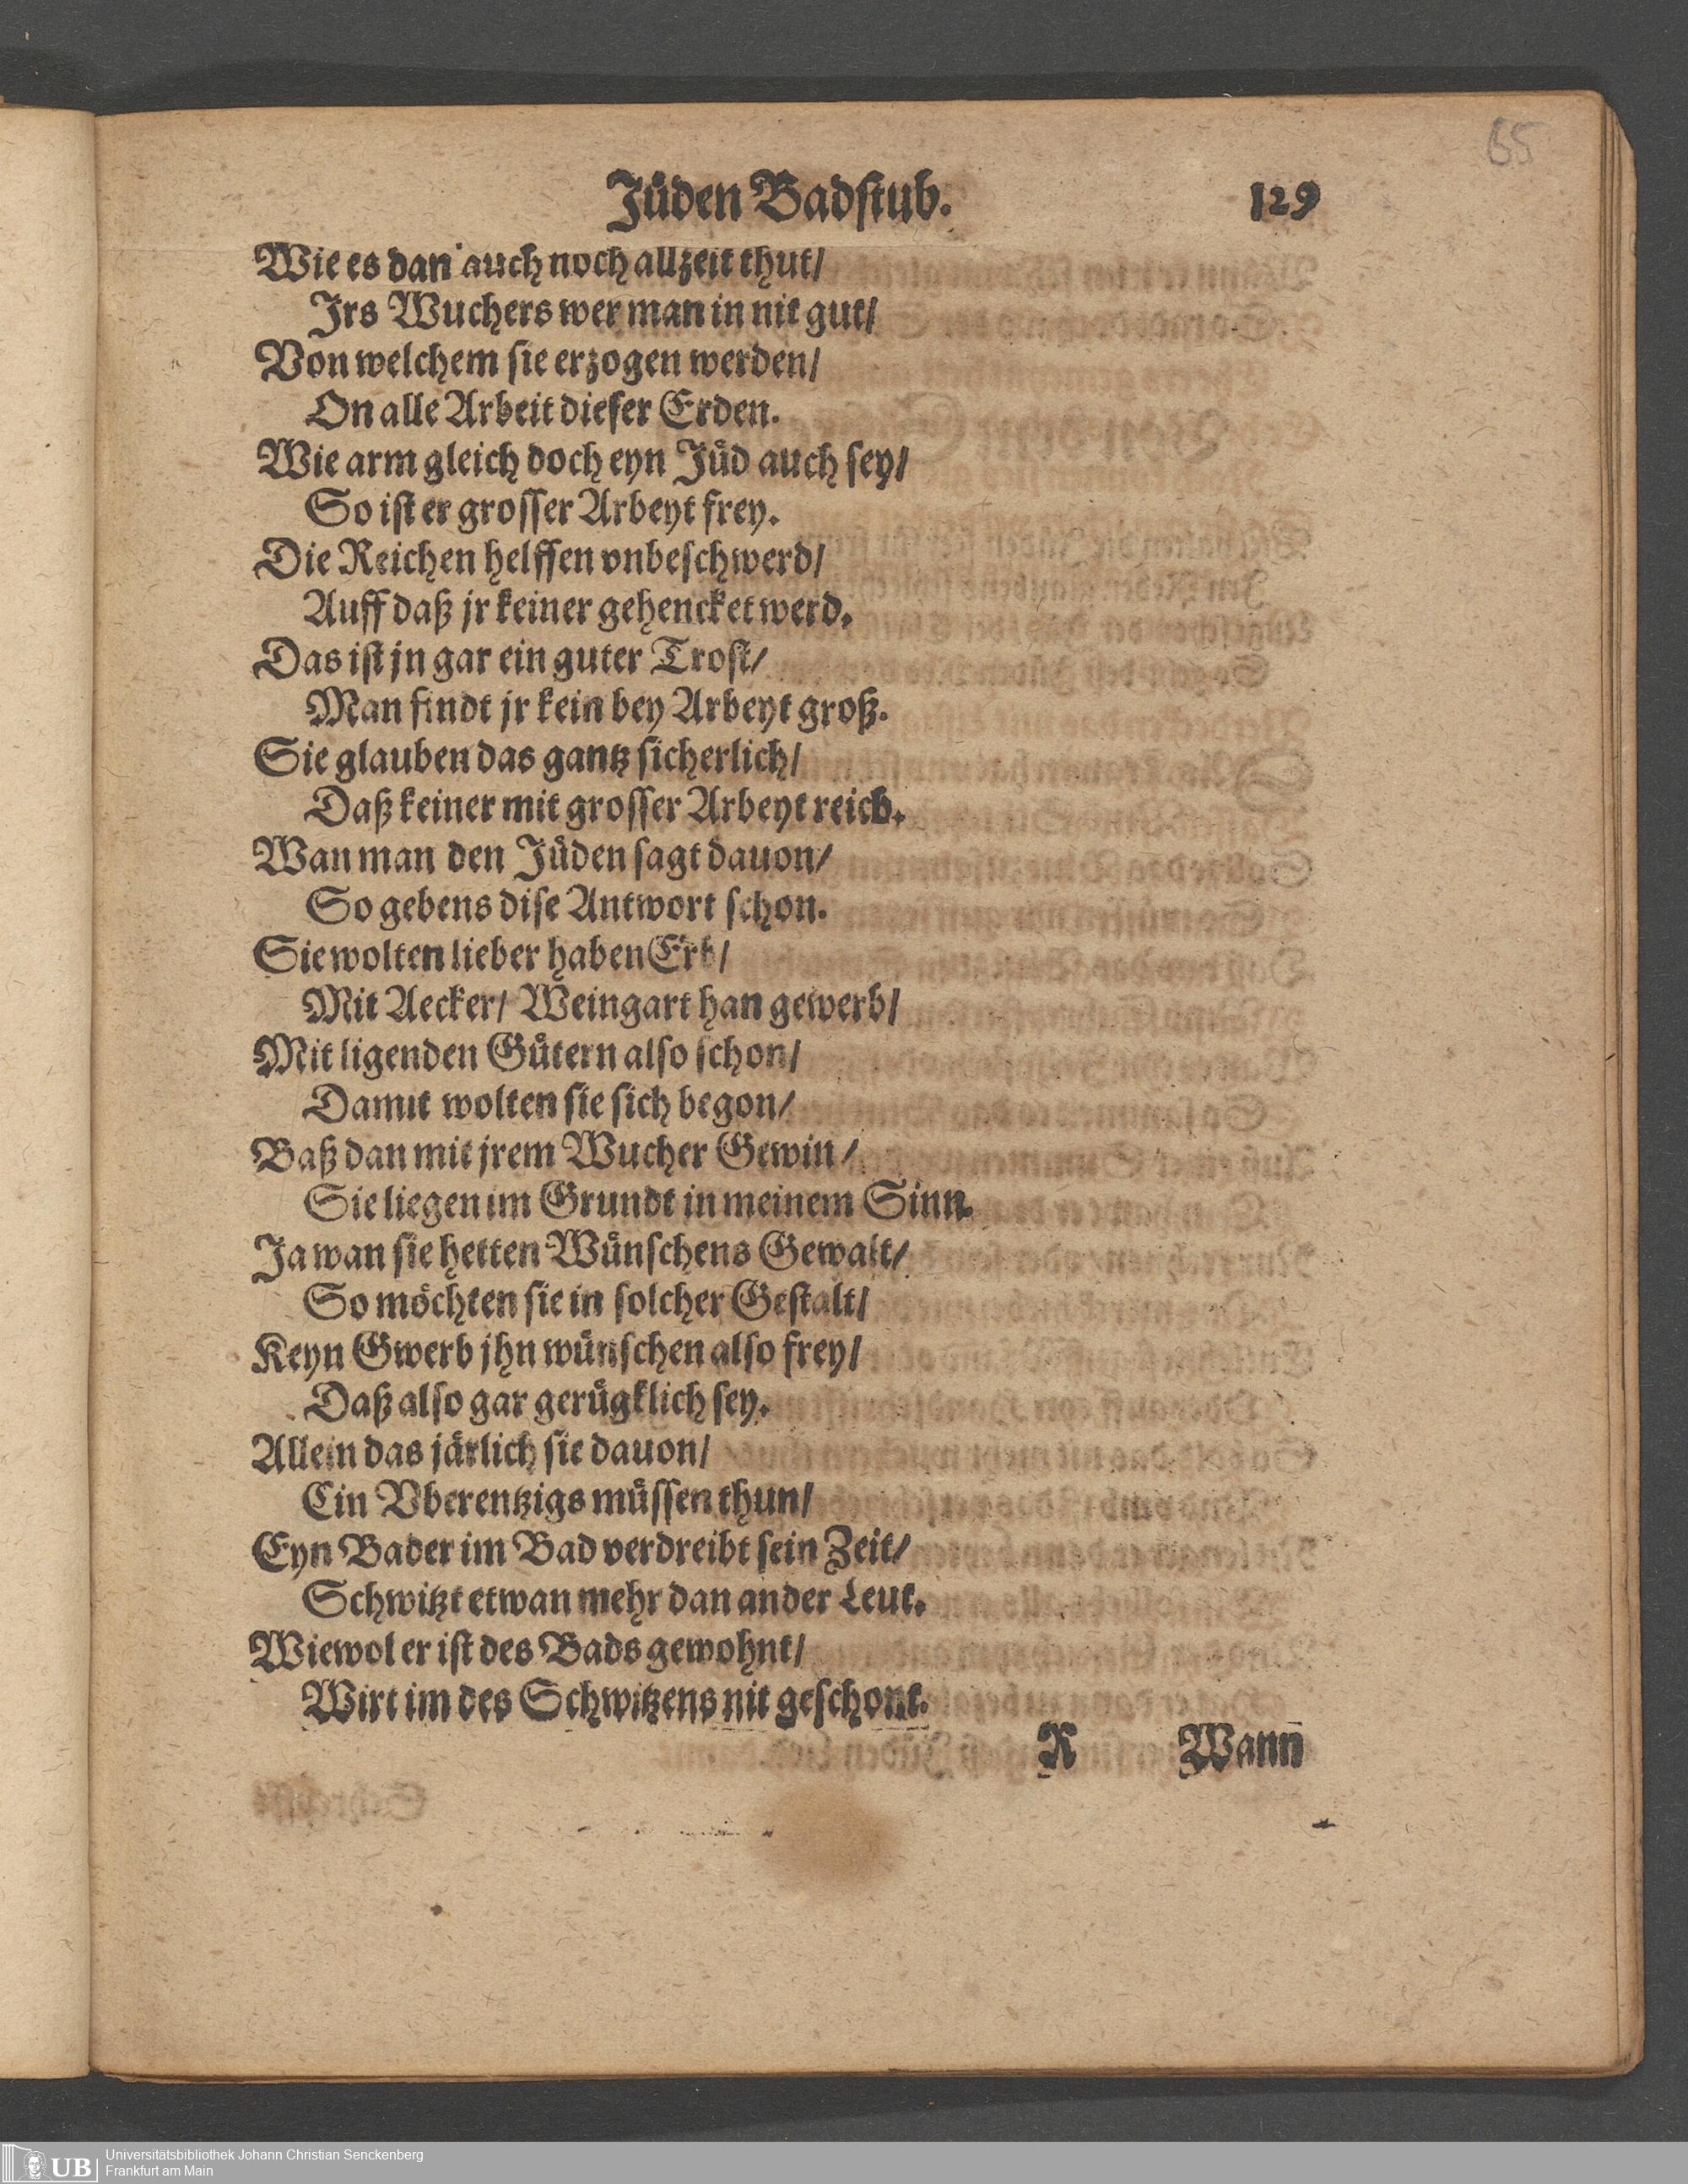 65
Jůden Badſtub. 129
Wie es dan auch noch allzeit thut/
Jrs Wuchers wer man in nit gut/
Von welchem ſie erzogen werden/
On alle Arbeit dieſer Erden.
Wie arm gleich doch eyn Jůd auch ſey/
So iſt er groſſer Arbeyt frey.
Die Reichen helffen vnbeſchwerd/
Auff daß jr keiner gehencket werd.
Das iſt jn gar ein guter Troſt/
Man findt jr kein bey Arbeyt groß.
Sie glauben das gantz ſicherlich/
Daß keiner mit groſſer Arbeyt reich.
Wan man den Jůden ſagt dauon/
So gebens diſe Antwort ſchon.
Sie wolten lieber haben Erb/
Mit Aecker/ Weingart han gewerb/
Mit ligenden Gůtern alſo ſchon/
Damit wolten ſie ſich begon/
Baß dan mit jrem Wucher Gewin/
Sie liegen im Grundt in meinem Sinn.
Ja wan ſie hetten Wůnſchens Gewalt/
So mőchten ſie in ſolcher Geſtalt/
Keyn Gwerb jhn wůnſchen alſo frey/
Daß alſo gar gerůgklich ſey.
Allein das järlich ſie dauon/
Ein Vberentzigs můſſen thun/
Eyn Bader im Bad verdreibt ſein Zeit/
Schwitzt etwan mehr dan ander Leut.
Wiewol er iſt des Bads gewohnt/
Wirt im des Schwitzens nit geſchont.
R Wann
UB Universitätsbibliothek Johann Christian Senckenberg
Frankfurt am Main